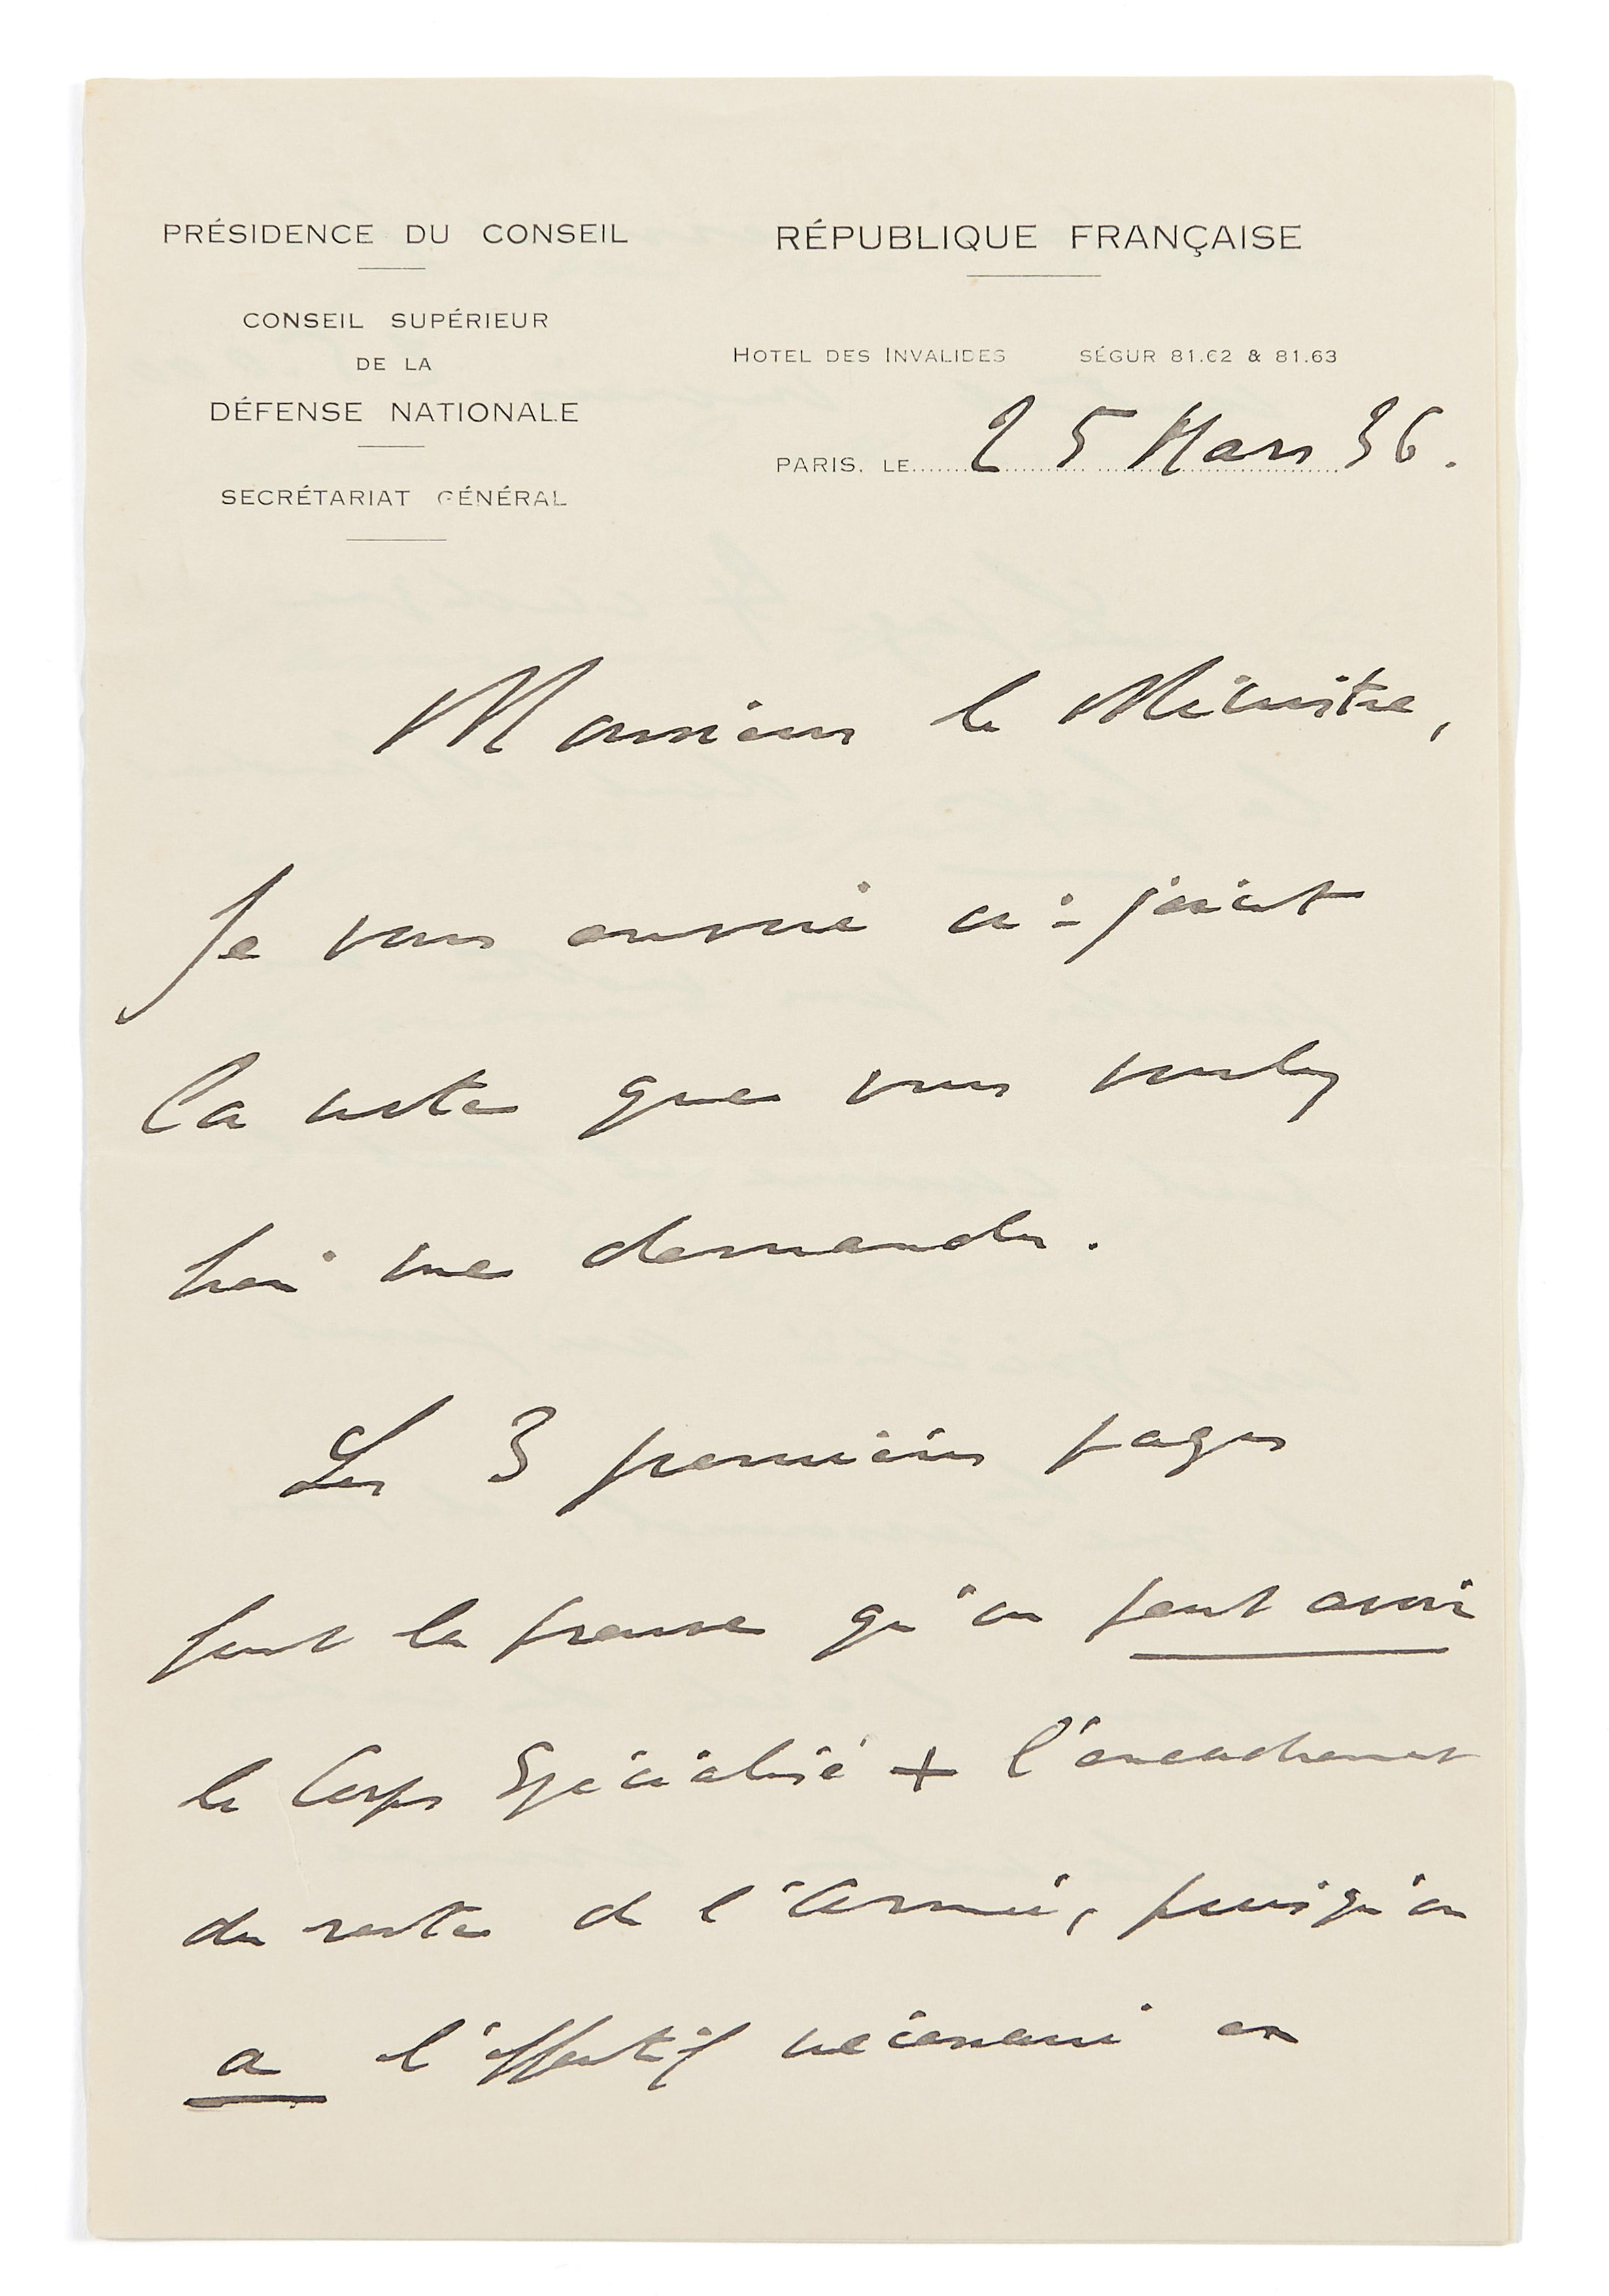 PRÉSIDENCE DU CONSEIL
CONSEIL SUPÉRIEUR
DE LA
DÉFENSE NATIONALE
SECRÉTARIAT GÉNÉRAL
RÉPUBLIQUE FRANÇAISE
HOTEL DES INVALIDES SÉGUR 81.62 & 81.63
PARIS. LE 25 Mars 36.
Monsieur le Ministre,
Je vous envoie ci-joint
la note que vous voulez
bien me demander.
Les 3 premières pages
font la preuve qu'on peut avoir
le Corps Spécialisé +
du reste de l'Armée, puisqu'on
a l'effectif nécessaire en